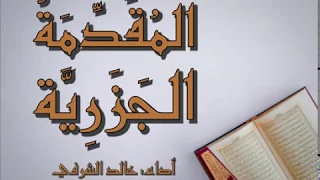 المُقَدِّمَةُ
الجَزَرِيَّة
أداء خالد الشرفي